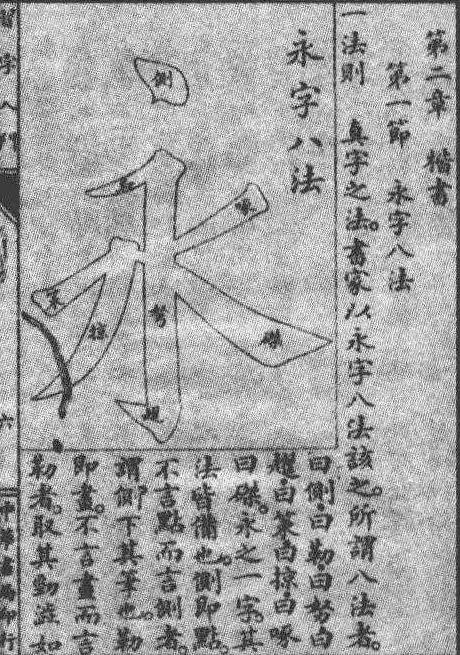 第二章　楷書
第一節　永字八法
一法則　真字之法。書家以永字八法該之。所謂八法者。
永字八法
側
勒
啄
策
掠
努
磔
趯
曰側。曰勒。曰努。曰
趯。曰策。曰掠。曰啄。
曰磔。永之一字。其
法皆備也。側即點。
不言點而言側者。
謂側下其筆也。勒
即畫。不言畫而言
勒者。取其勁澁如
習字入門
六
中華書局印行